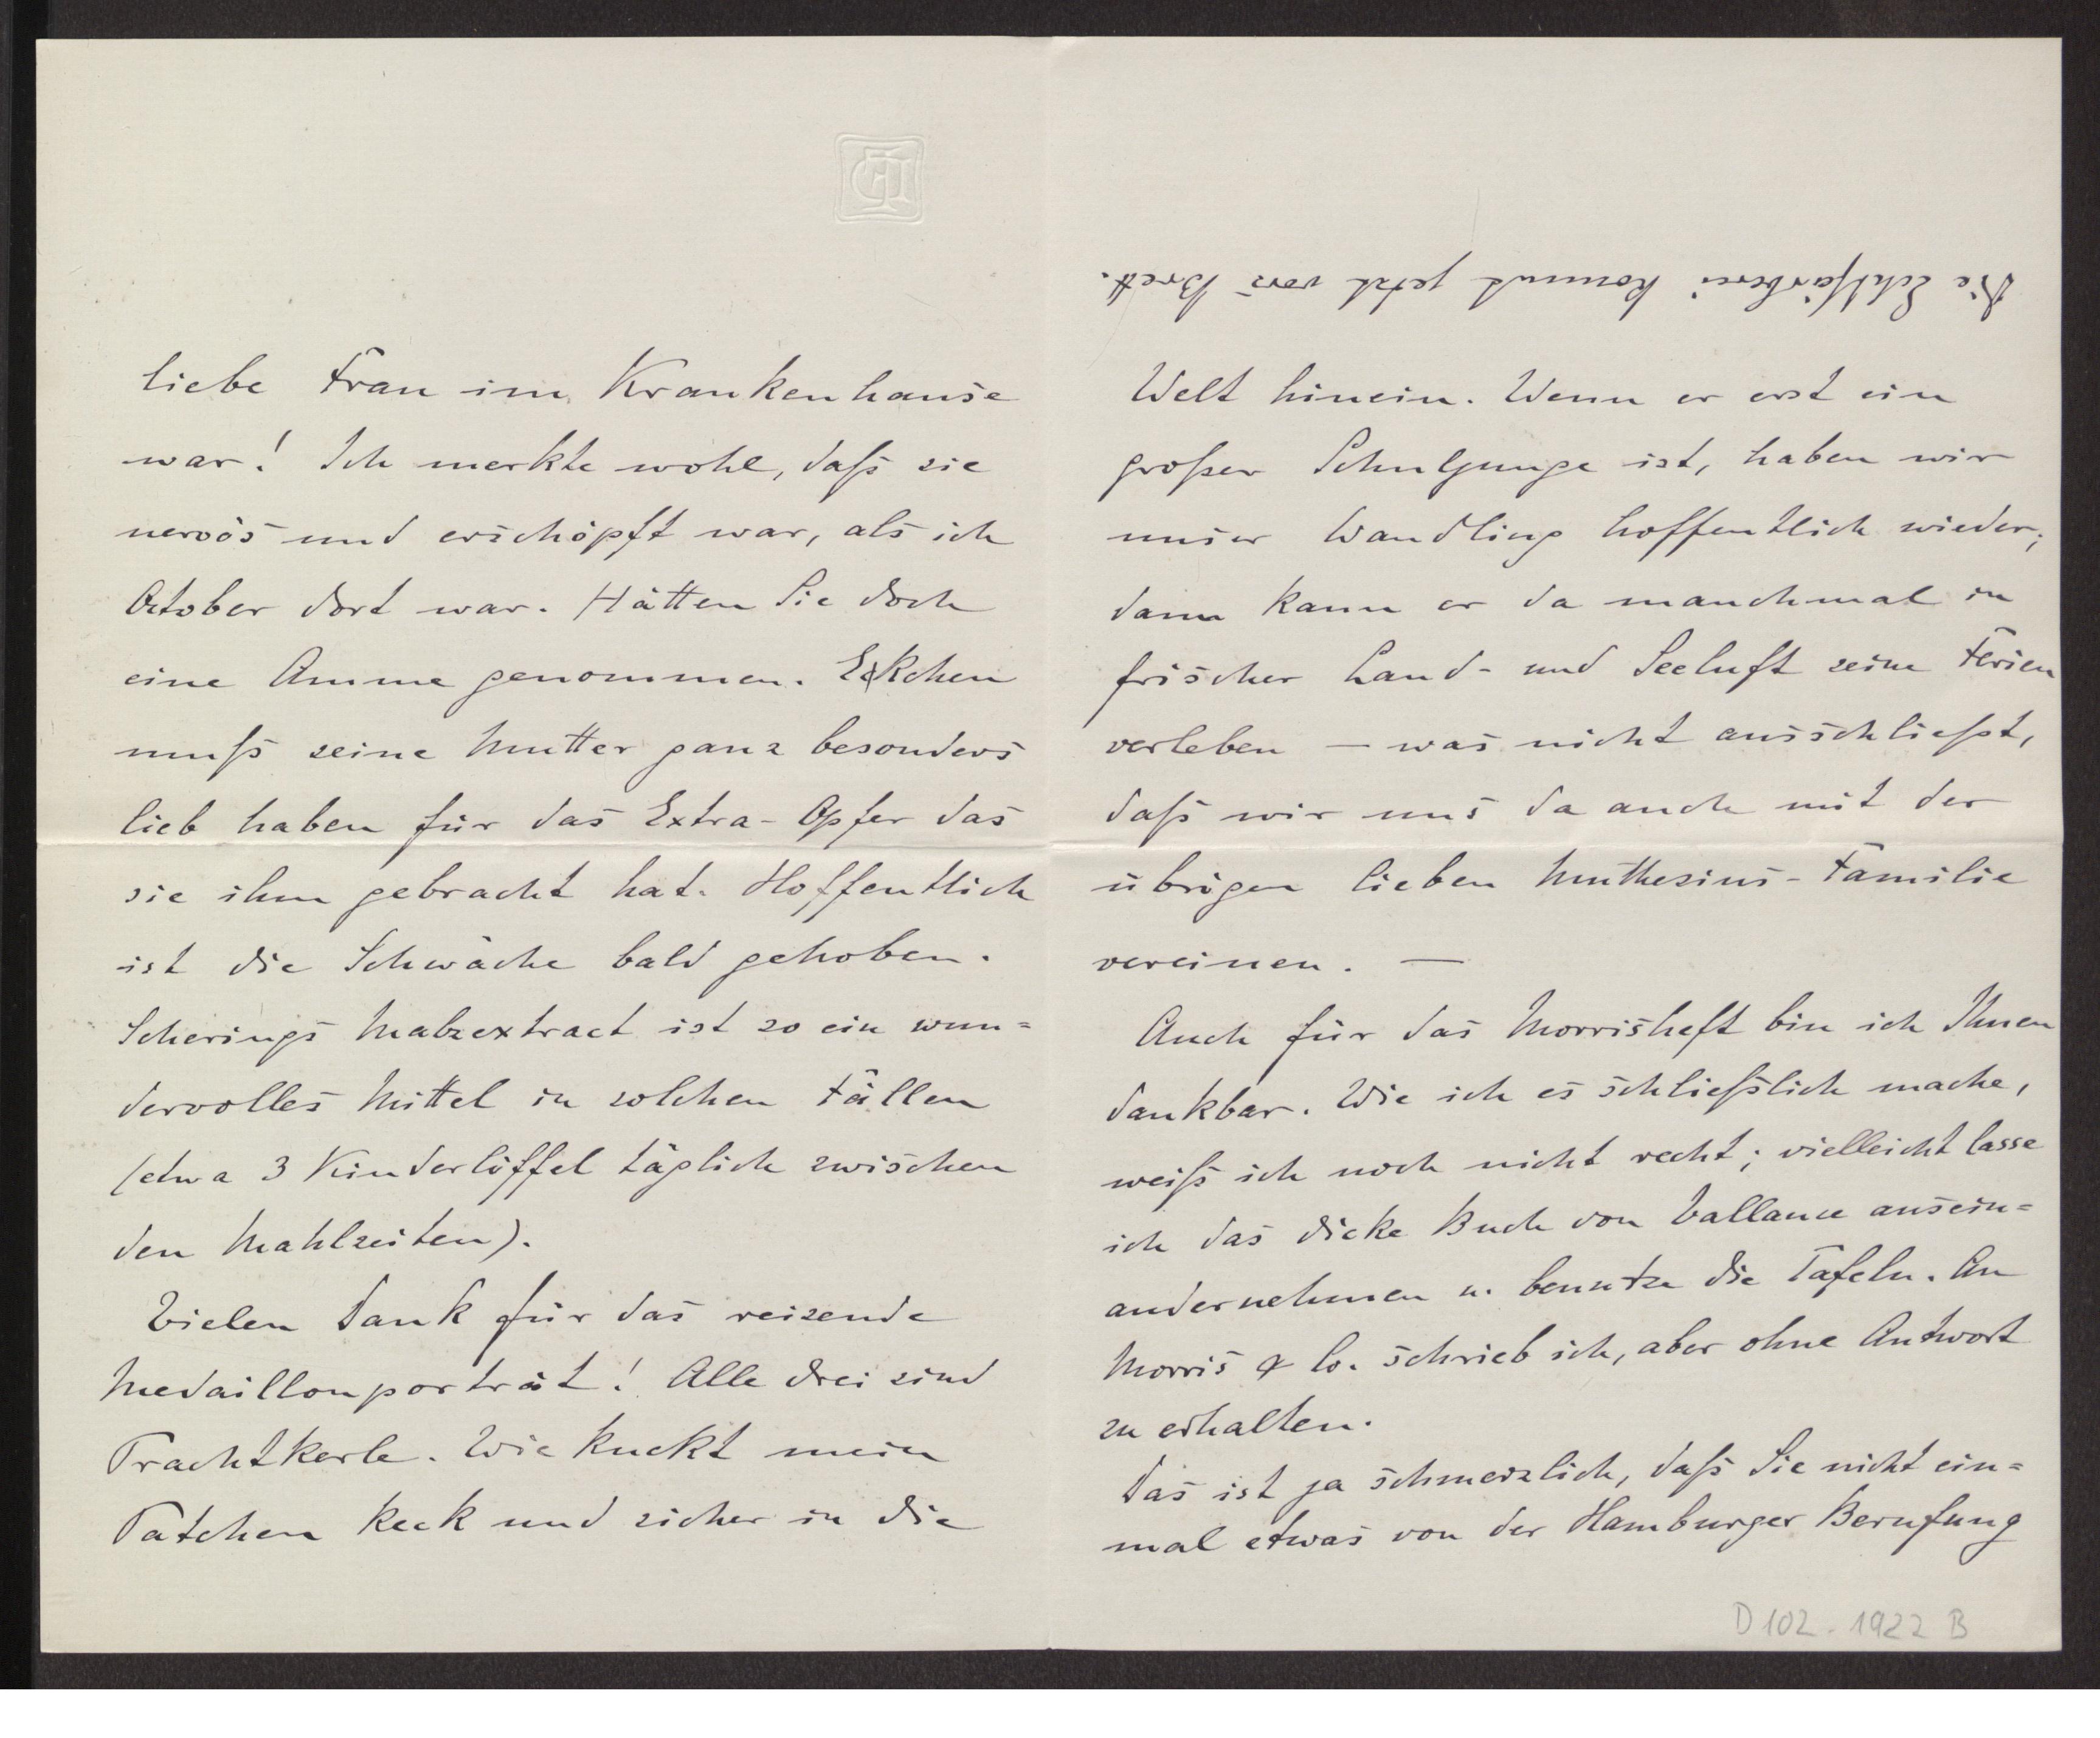 liebe Frau im Krankenhause
war! Ich merkte wohl, daß sie
nervös und erschöpft war, als ich
October dort war. Hätten Sie doch
eine Amme genommen. Eckchen
muß seine Mutter ganz besonders
lieb haben für das Extra-Opfer das
sie ihm gebracht hat. Hoffentlich
ist die Schwäche bald gehoben.
Scherings Malzextract ist so ein wun=
dervolles Mittel in solchen Fällen
(etwa 3 Kinderlöffel täglich zwischen
den Mahlzeiten).
Vielen Dank für das reizende
Medaillonporträt! Alle drei sind
Prachtkerle. Wie kuckt mein
Patchen keck und sicher in die
Die Echtfärberei kommt jetzt vors Brett.
Welt hinein. Wenn er erst ein
großer Schuljunge ist, haben wir
unser Wandling hoffentlich wieder;
dann kann er da manchmal in
frischer Land- und Seeluft seine Ferien
verleben — was nicht ausschließt,
daß wir uns da auch mit der
übrigen lieben Muthesius-Familie
vereinen. —
Auch für das Morrisheft bin ich Ihnen
dankbar. Wie ich es schließlich mache,
weiß ich noch nicht recht; vielleicht lasse
ich das dicke Buch von Vallance ausein=
andernehmen u. benutze die Tafeln. An
Morris & Co. schrieb ich, aber ohne Antwort
zu erhalten.
Das ist ja schmerzlich, daß Sie nicht ein=
mal etwas von der Hamburger Berufung
D 102-1922 B